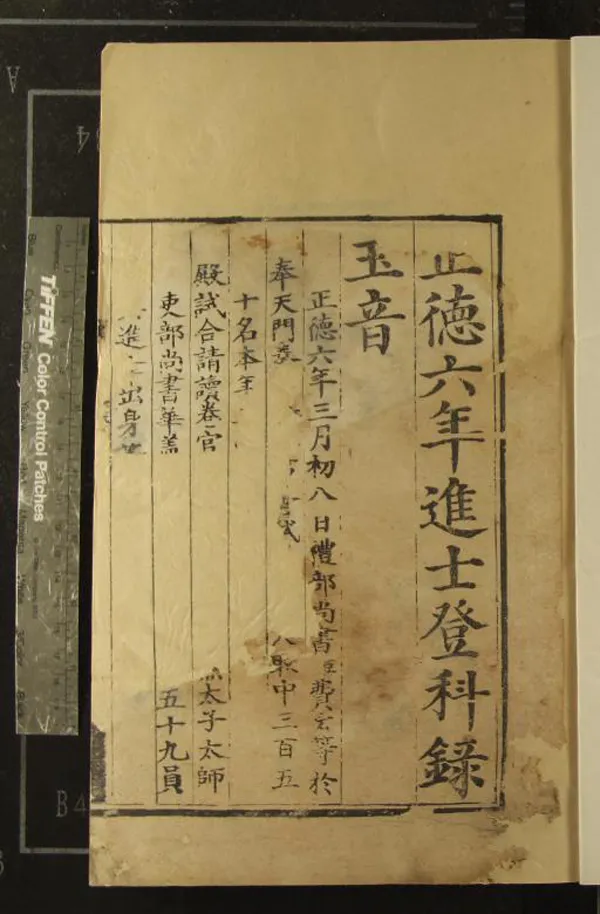 正德六年進士登科錄
玉音
正德六年三月初八日禮部尚書臣費宏等於
奉天門奏 試 取中三百五
十名本年
殿試合請讀卷官
太子太師
吏部尚書華盖
五十九員
進士出身等
TIFFEN Color Control Patches
A
B4